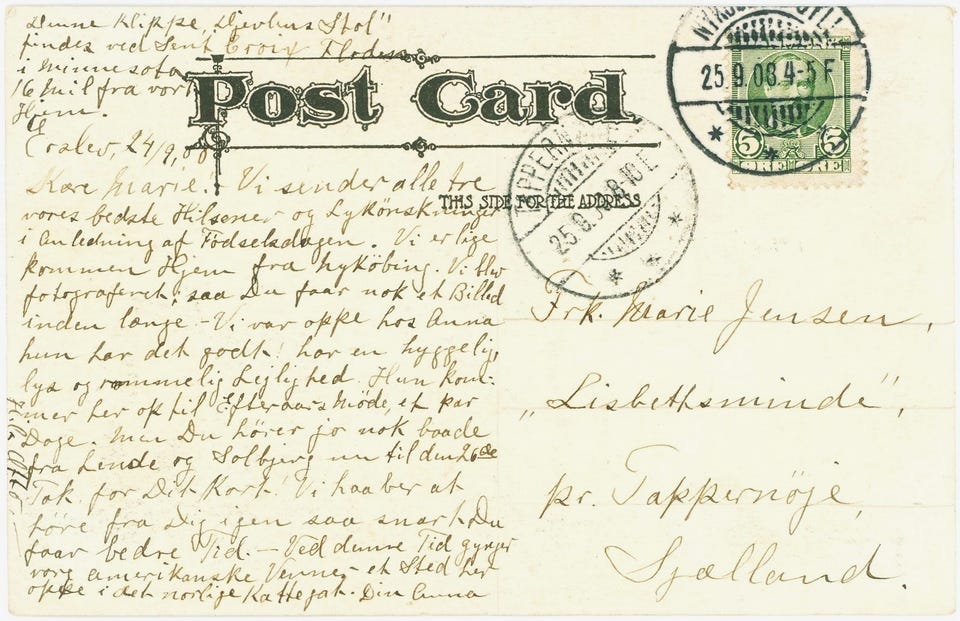 Denne Klippe, "Djevlens Stol"
findes ved Sent Croix Flodens
i Minnesota
16 mil fra vort
Hjem.
Post Card
THIS SIDE FOR THE ADDRESS
Erslev, 24/9, 08
Kære Marie. - Vi sender alle tre
vores bedste Hilsener og Lykönskninger
i Anledning af Födselsdagen. Vi er lige
kommen Hjem fra Nyköbing. Vi blev
fotograferet, saa Du faar nok et Billed
inden længe - Vi var oppe hos Anna
hun har det godt! har en hyggelig,
lys og rommelig Lejlighed. Hun kom-
mer her op til Efteraars Möde, et par
Dage. Men Du hörer jo nok baade
fra Lende og Solbjerg nu til den 26de
Tak for Dit Kort! Vi haaber at
höre fra Dig igen saa snart Du
faar bedre Tid. - Ved denne Tid gynger
vore amerikanske Venner et Sted her
oppe i det norlige Kattegat. Din Anna
25.9.08.4-5 F
5 5
ØRE ØRE
TAPPERN
25.9.08.8-10 E
Frk. Marie Jensen,
"Lisbethsminde",
pr. Tappernöje,
Sjælland.